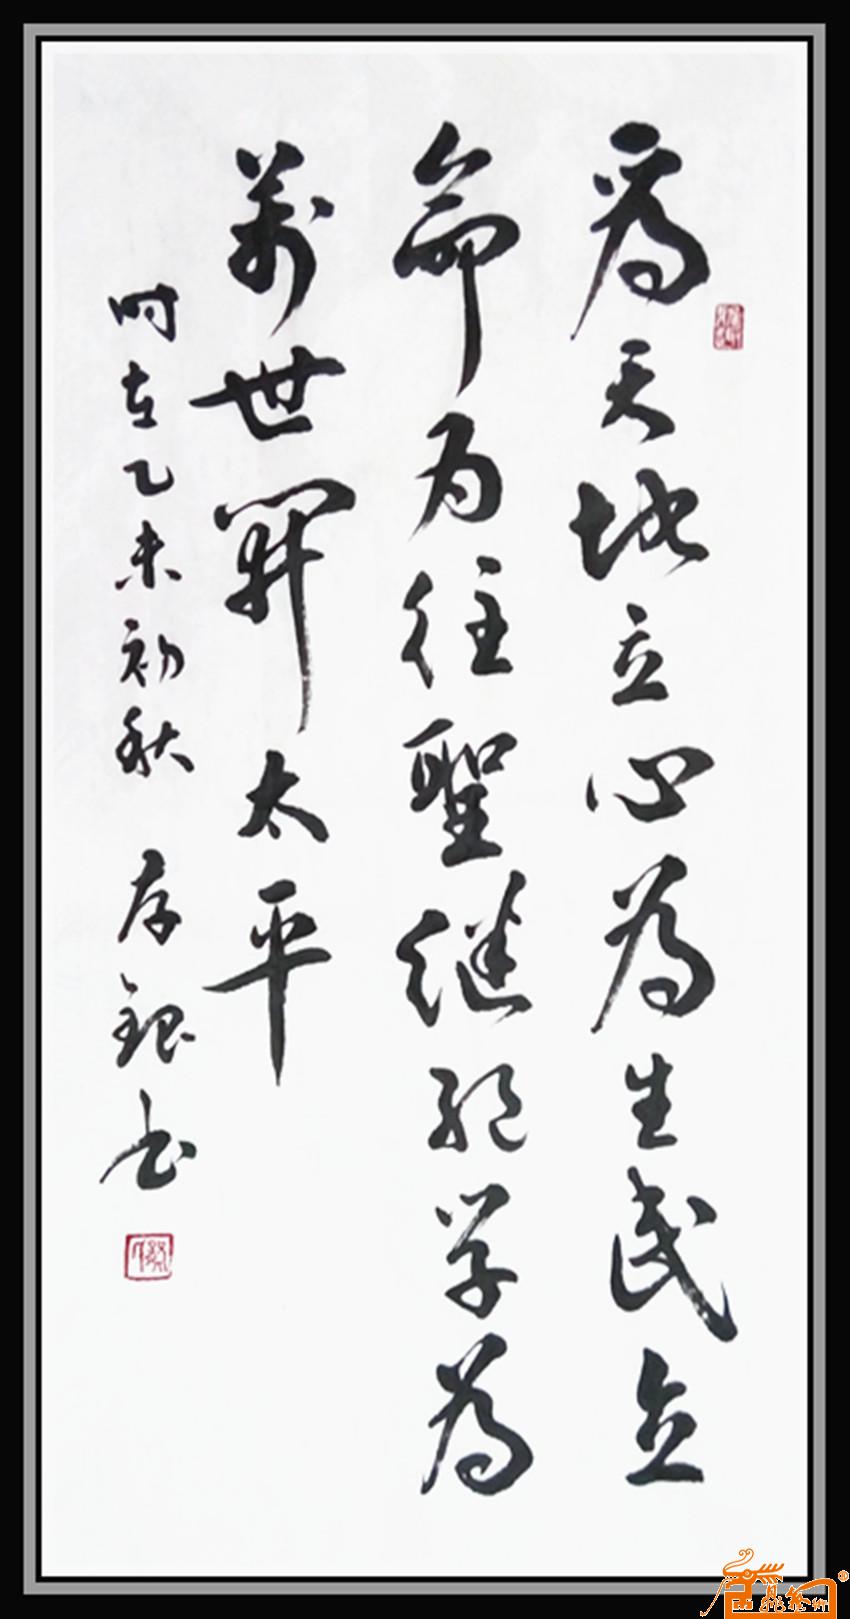 為天地立心為生民立
命为往聖继绝学為
萬世開太平
时在乙未初秋 存银书